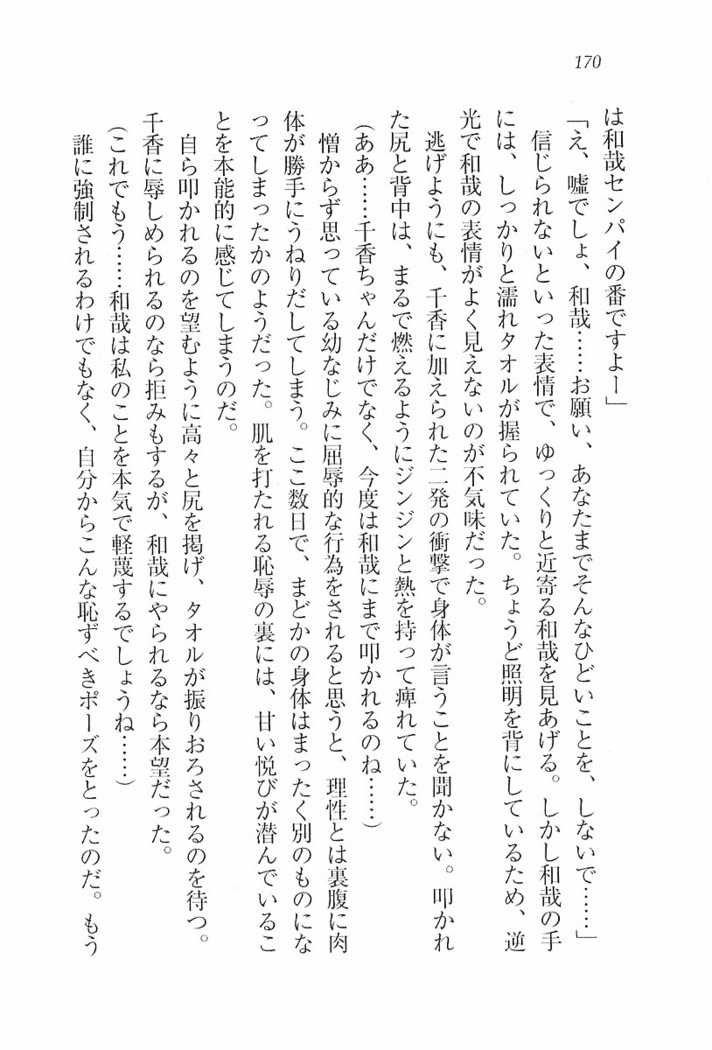 170
は和哉センパイの番ですよー」
「え、嘘でしょ、和哉……お願い、あなたまでそんなひどいことを、しないで……」
信じられないといった表情で、ゆっくりと近寄る和哉を見あげる。しかし和哉の手
には、しっかりと濡れタオルが握られていた。ちょうど照明を背にしているため、逆
光で和哉の表情がよく見えないのが不気味だった。
逃げようにも、千香に加えられた二発の衝撃で身体が言うことを聞かない。叩かれ
た尻と背中は、まるで燃えるようにジンジンと熱を持って痺れていた。
(ああ……千香ちゃんだけでなく、今度は和哉にまで叩かれるのね……)
憎からず思っている幼なじみに屈辱的な行為をされると思うと、理性とは裏腹に肉
体が勝手にうねりだしてしまう。ここ数日で、まどかの身体はまったく別のものにな
ってしまったかのようだった。肌を打たれる恥辱の裏には、甘い悦びが潜んでいるこ
とを本能的に感じてしまうのだ。
自ら叩かれるのを望むように高々と尻を掲げ、タオルが振りおろされるのを待つ。
千香に辱しめられるのなら拒みもするが、和哉にやられるなら本望だった。
(これでもう……和哉は私のことを本気で軽蔑するでしょうね……)
誰に強制されるわけでもなく、自分からこんな恥ずべきポーズをとったのだ。もう